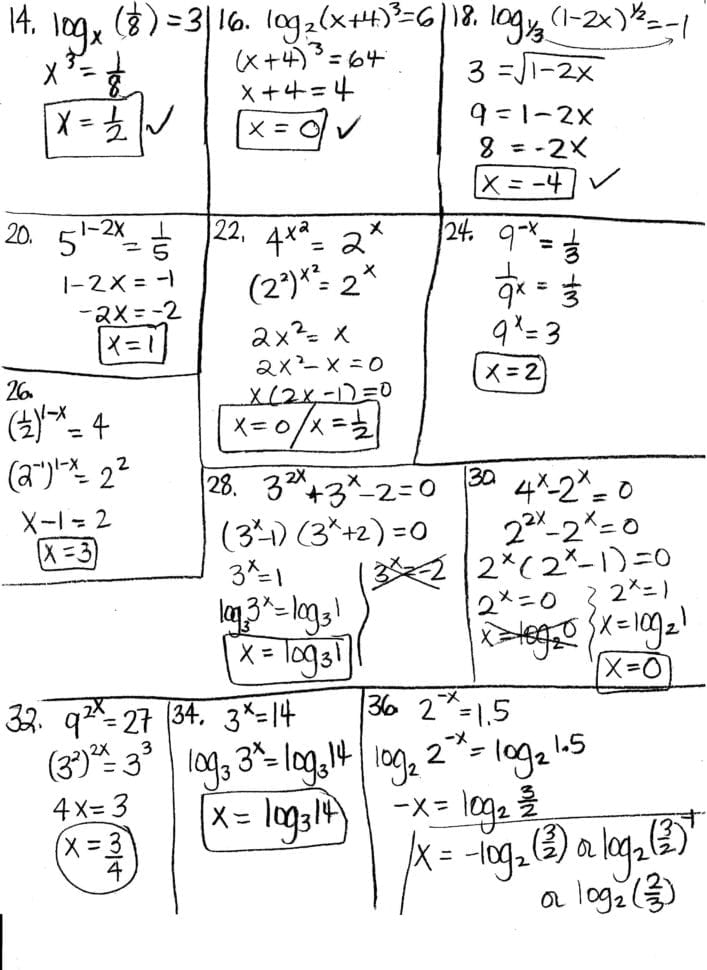 14. logₓ (1/8) = 3
x³ = 1/8
x = 1/2 ✓
16. log₂(x+4)³=6
(x+4)³ = 64
x+4=4
x = 0 ✓
18. log₁/₃ (1-2x)^½ = -1
3 = √1-2x
9 = 1-2x
8 = -2x
x = -4 ✓
20. 5^1-2x = 1/5
1-2x = -1
-2x = -2
x = 1
22. 4^x² = 2^x
(2²)^x² = 2^x
2x² = x
2x² - x = 0
x(2x-1)=0
x=0 / x=1/2
24. 9^-x = 1/3
1/9^x = 1/3
9^x = 3
x = 2
26.
(1/2)^1-x = 4
(2^-1)^1-x = 2²
x-1 = 2
x = 3
28. 3^2x + 3^x - 2 = 0
(3^x-1) (3^x+2) = 0
3^x=1 3^x=-2
log₃3^x=log₃1
x = log₃1
30 4^x-2^x = 0
2^2x-2^x=0
2^x(2^x-1)=0
2^x=0 2^x=1
x=log₂0 x=log₂1
x=0
32. 9^2x = 27
(3²)^2x = 3³
4x=3
x = 3/4
34. 3^x=14
log₃ 3^x = log₃14
x = log₃14
36 2^-x = 1.5
log₂ 2^-x = log₂ 1.5
-x = log₂ 3/2
x = -log₂(3/2) or log₂(3/2)^-1
or log₂(2/3)